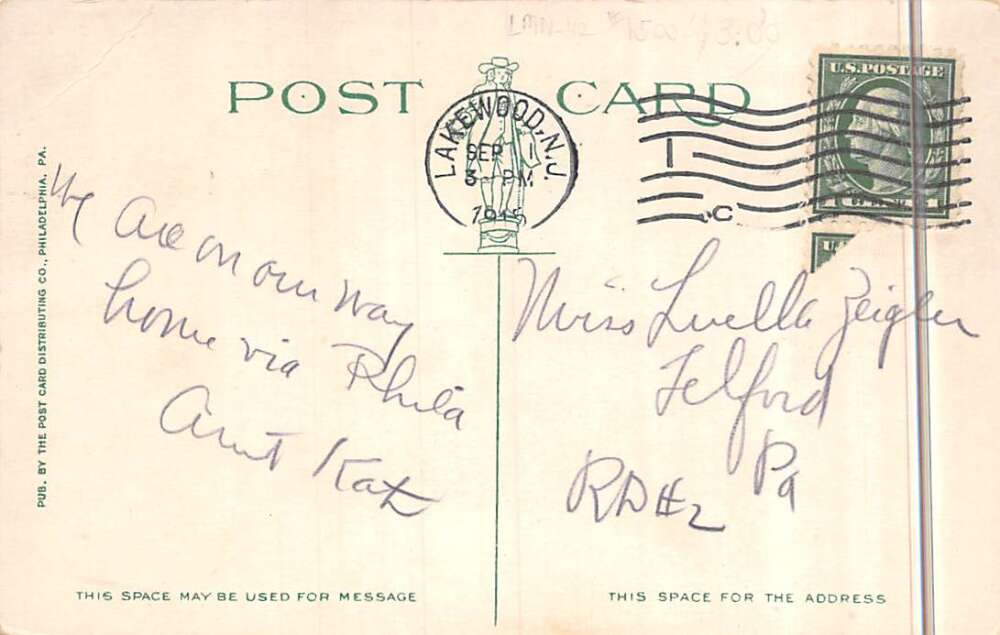 POST CARD
LAKEWOOD, N.J.
SEP
3-PM
U.S. POSTAGE
1
1
C
We are on our way
home via Phila
Aunt Kate
Miss Luella Zeigler
Telford
Pa
RD#2
PUB. BY THE POST CARD DISTRIBUTING CO., PHILADELPHIA, PA.
THIS SPACE MAY BE USED FOR MESSAGE
THIS SPACE FOR THE ADDRESS